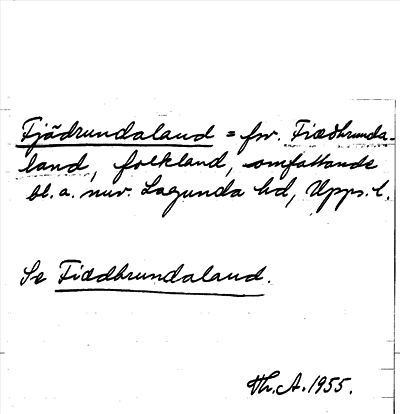 Fjädrundaland = fsv. Fiædhrunda-
land, folkland, omfattande
bl. a. nuv. Lagunda hd, Upps. l.
Se Fiædhrundaland.
Hr. A. 1955.